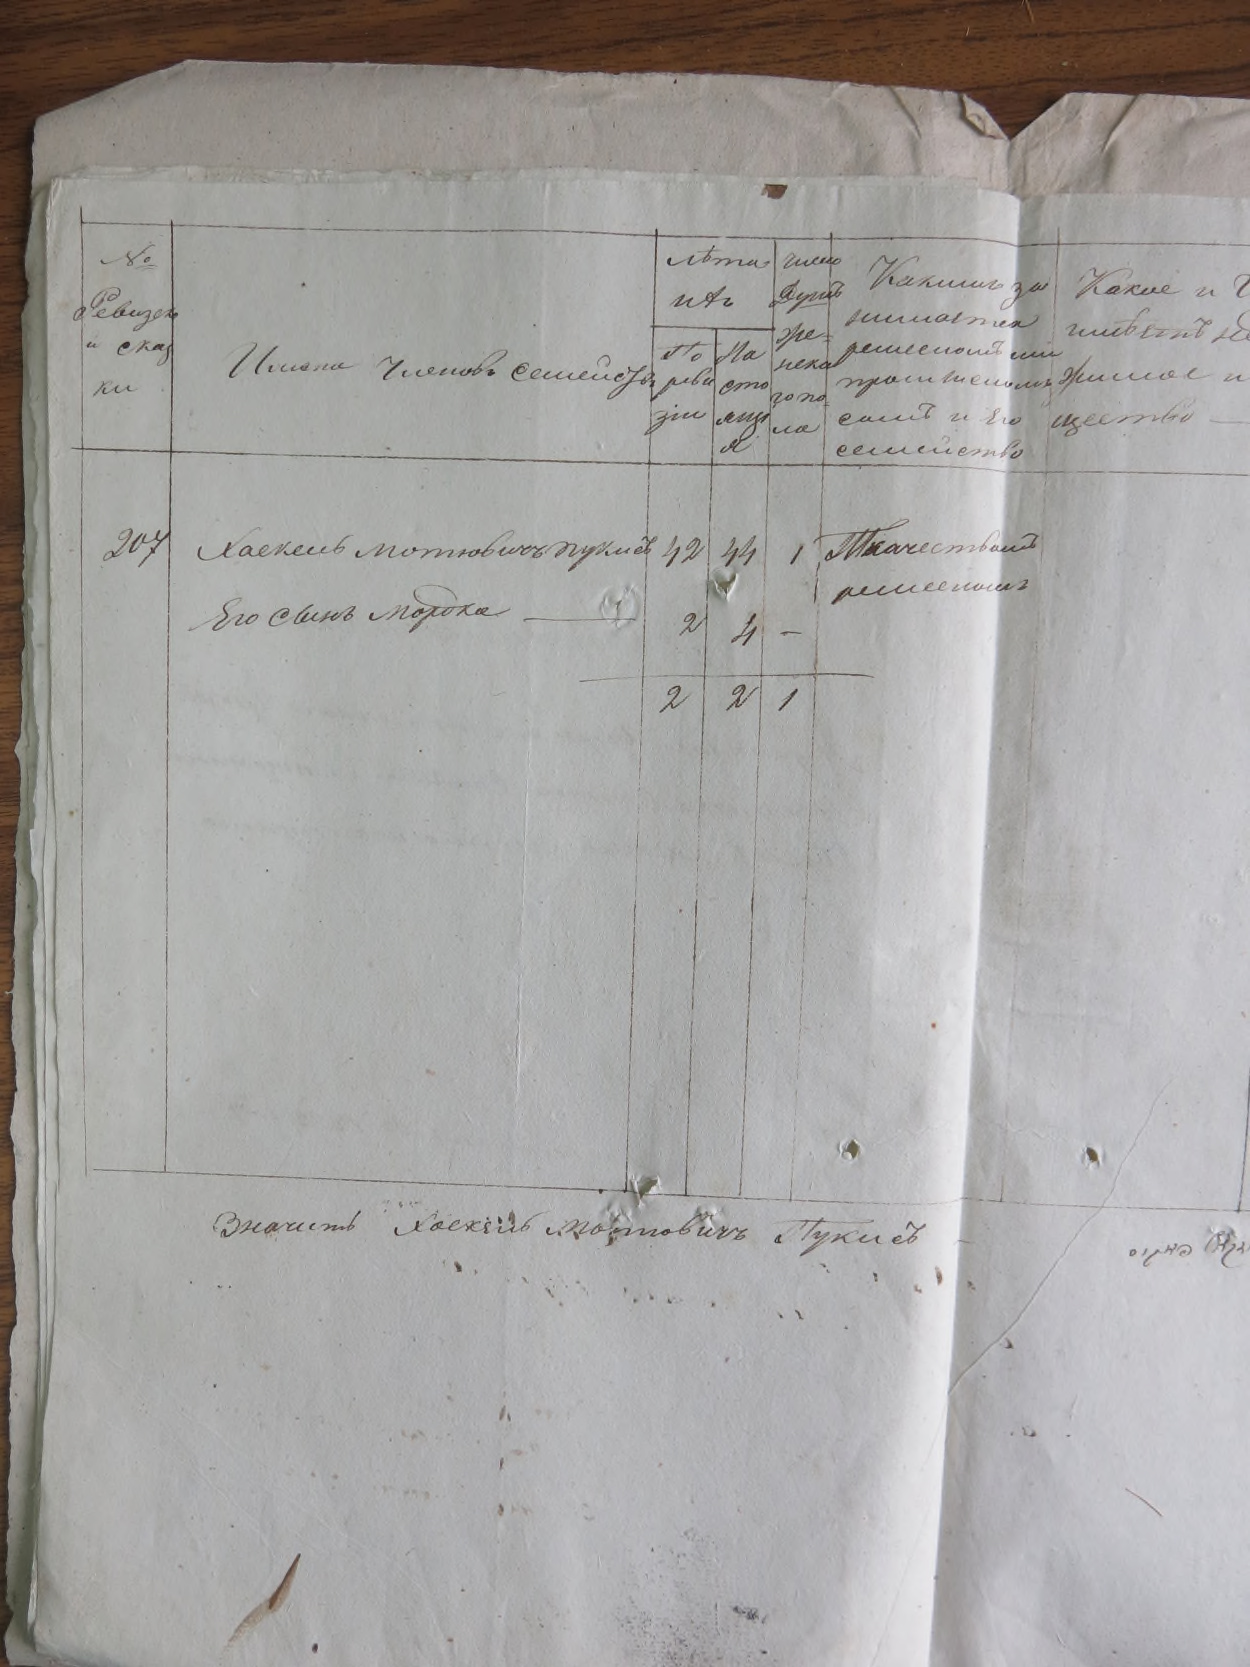 №
Ревизск
й сказ
ки
Имена Членовъ семействъ
Лѣта
ихъ
По
реви
зіи
На
сто
ящи
я
число
Душъ
же-
нска
го по
ла
Какимъ за
нимается
ремесломъ или
промысломъ
самъ и Его
семейство
Какое и
имѣетъ не
движимое и
щество —
207 Хаекель Мотіовичъ Пукисъ 42 44 1 Ткачествомъ
ремесломъ
Его сынъ Мордка 2 4 —
2 2 1
Значитъ Хаекель Мотовичъ Пукисъ